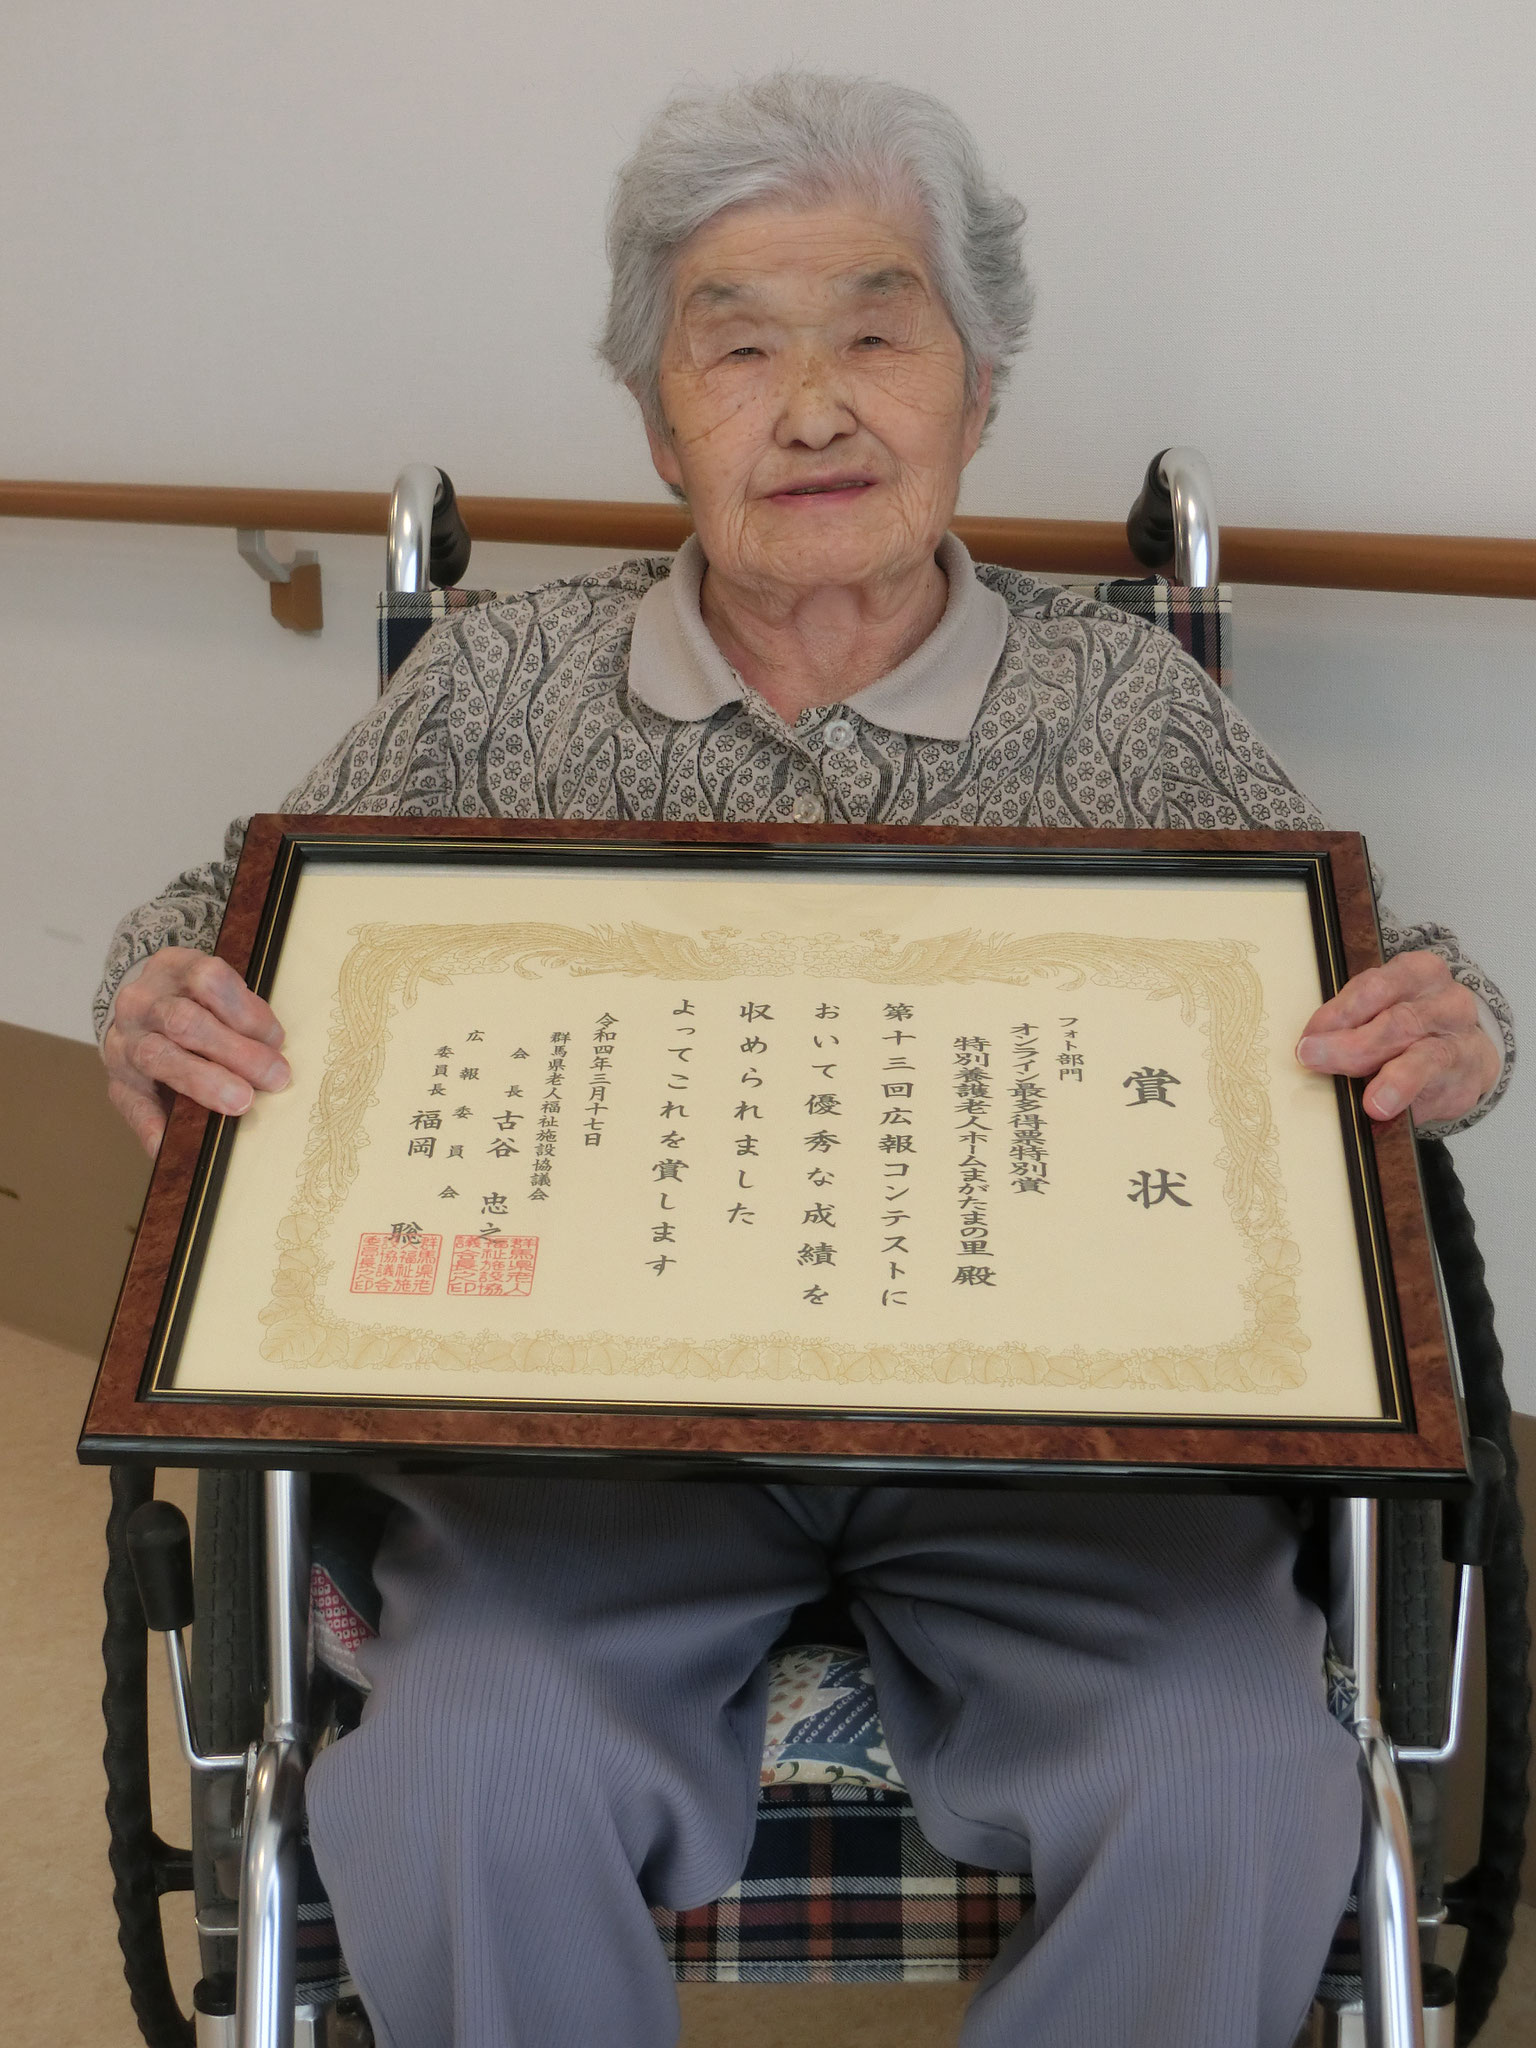 賞状
フォト部門
オンライン最多得票特別賞
特別養護老人ホームまがたまの里 殿
第十三回広報コンテストに
おいて優秀な成績を
収められました
よってこれを賞します
令和四年三月十七日
群馬県老人福祉施設協議会
会長 古谷 忠之
広報委員会
委員長 福岡 聡
群馬県老人
福祉施設協
議会長之印
群馬県老
人福祉施
設協議会
委員長之印